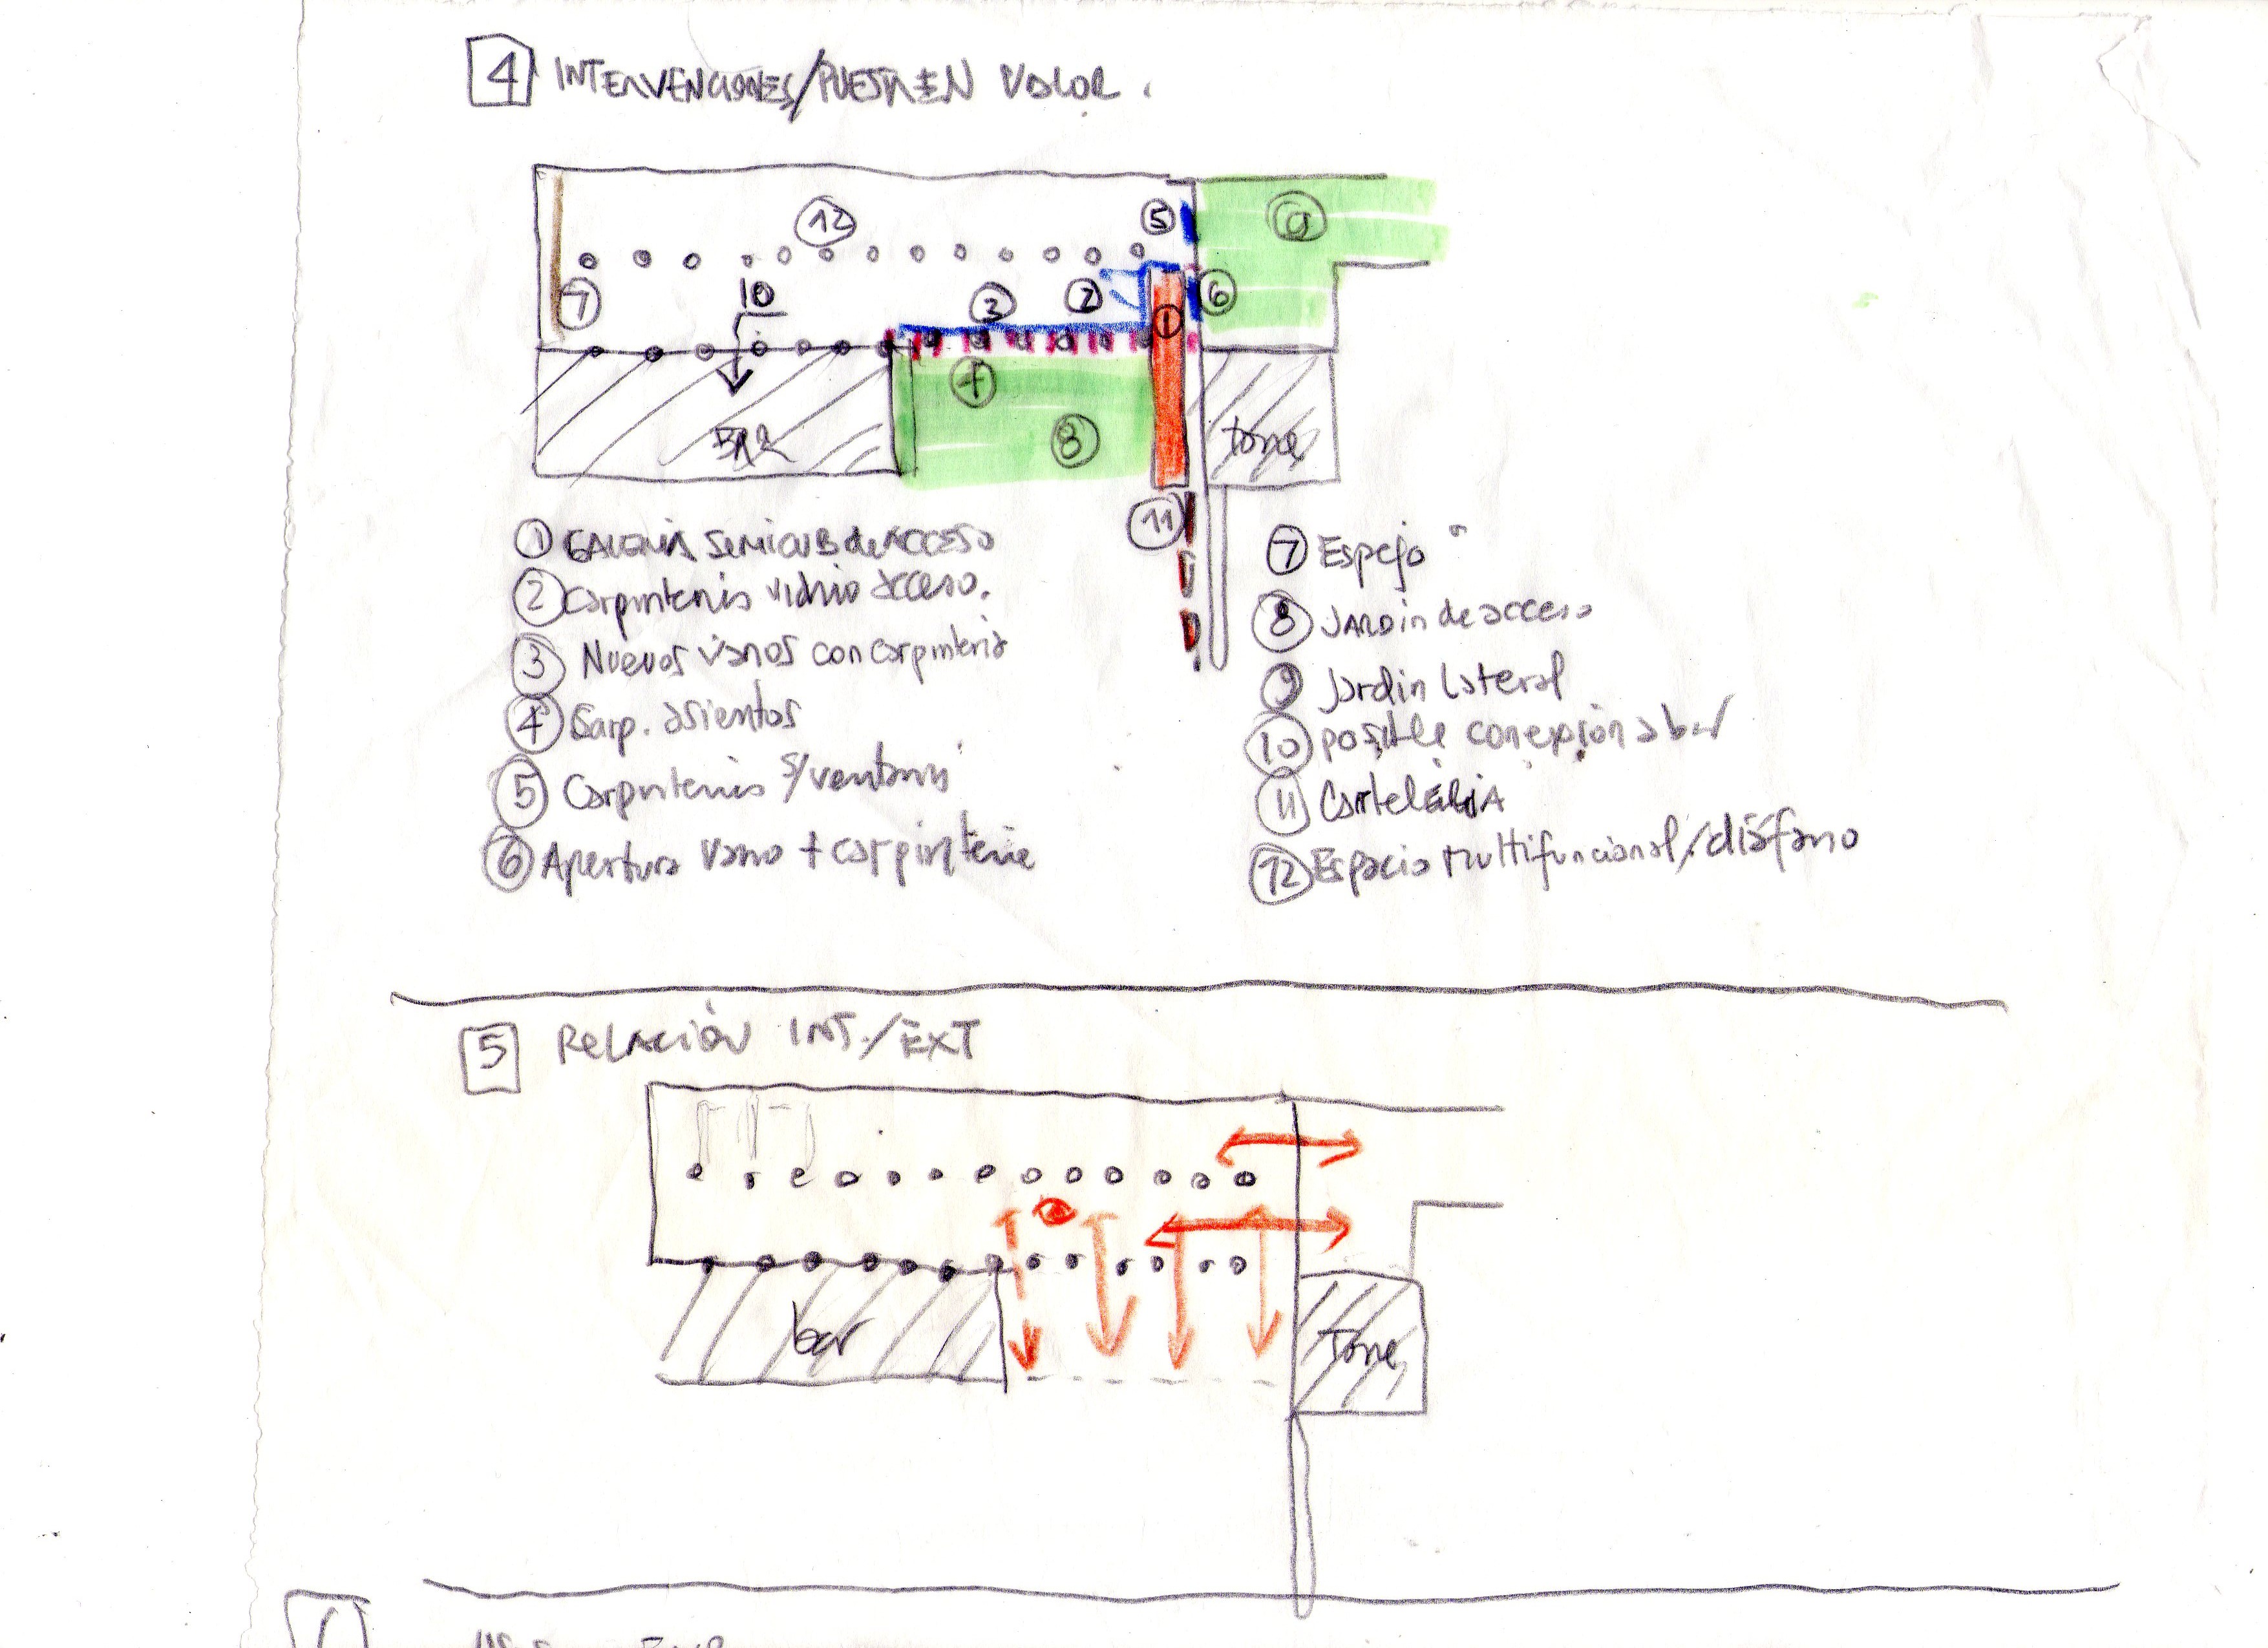 4 INTERVENCIONES/PUESTA EN VALOR.
12
5
9
7
10
3
2
1
6
4
8
BAR
torre
11
1 GALERIA SEMICUB de ACCESO
2 Carpinteria vidrio acceso.
3 Nuevos vanos con carpinteria
4 Carp. asientos
5 Carpinteria s/ventana
6 Apertura vano + carpinteria
7 Espejo
8 JARDin de acceso
9 Jardin Lateral
10 posible conexión a bar
11 CartelERIA
12 Espacio Multifuncional/diáfano
5 RELACIÓN INT./EXT
bar
Torre